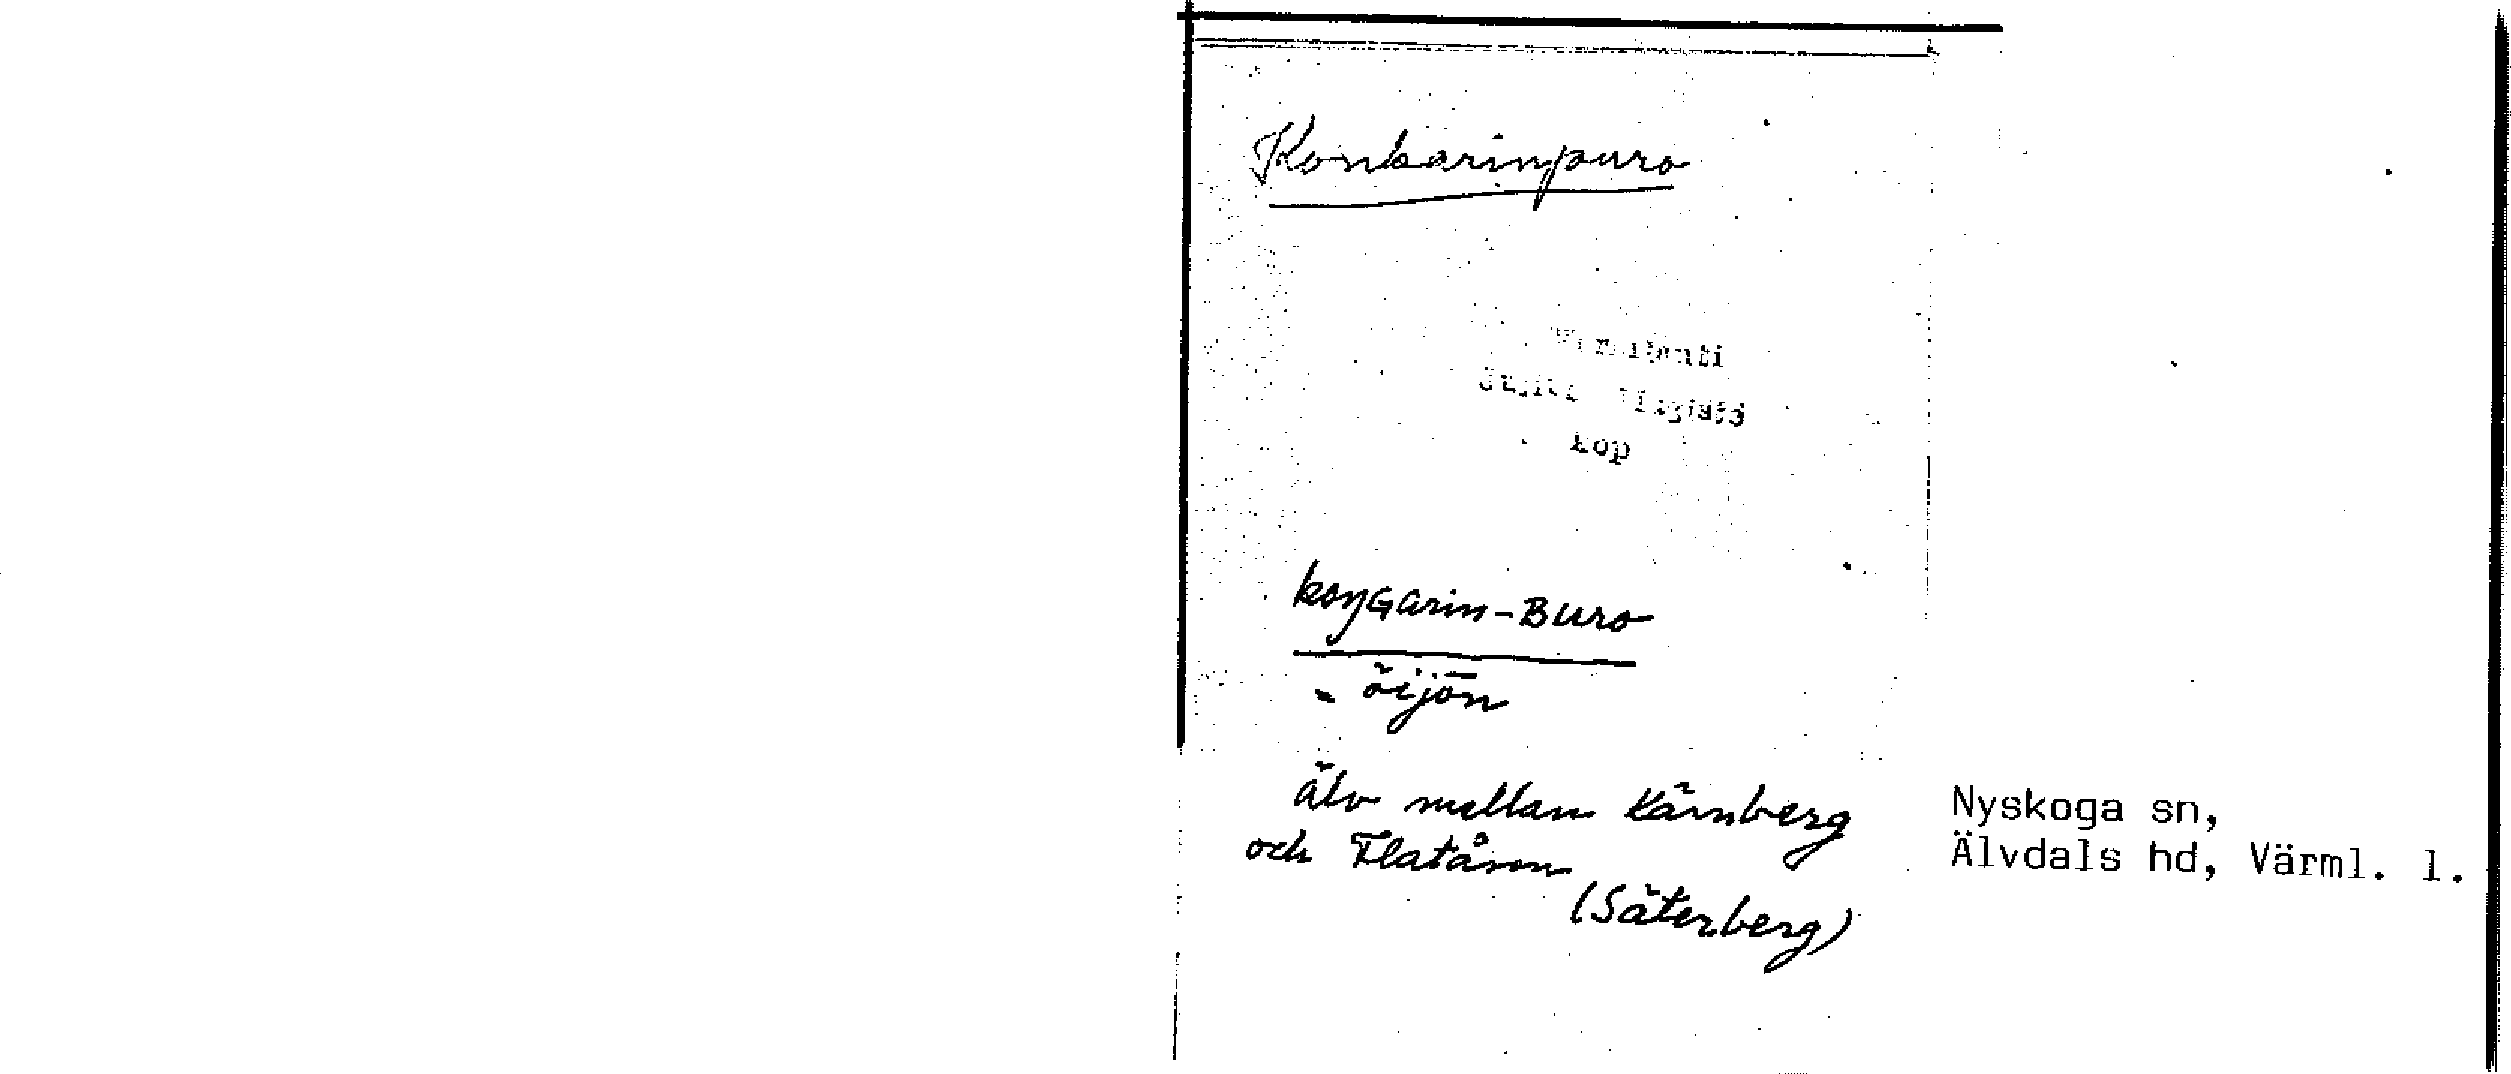 Konkarinpuro
kop
koŋGarin-Buro
älv mellan Kärnberg
och Flatåsen
(Säterberg)
Nyskoga sn,
Älvdals hd, Värml. l.